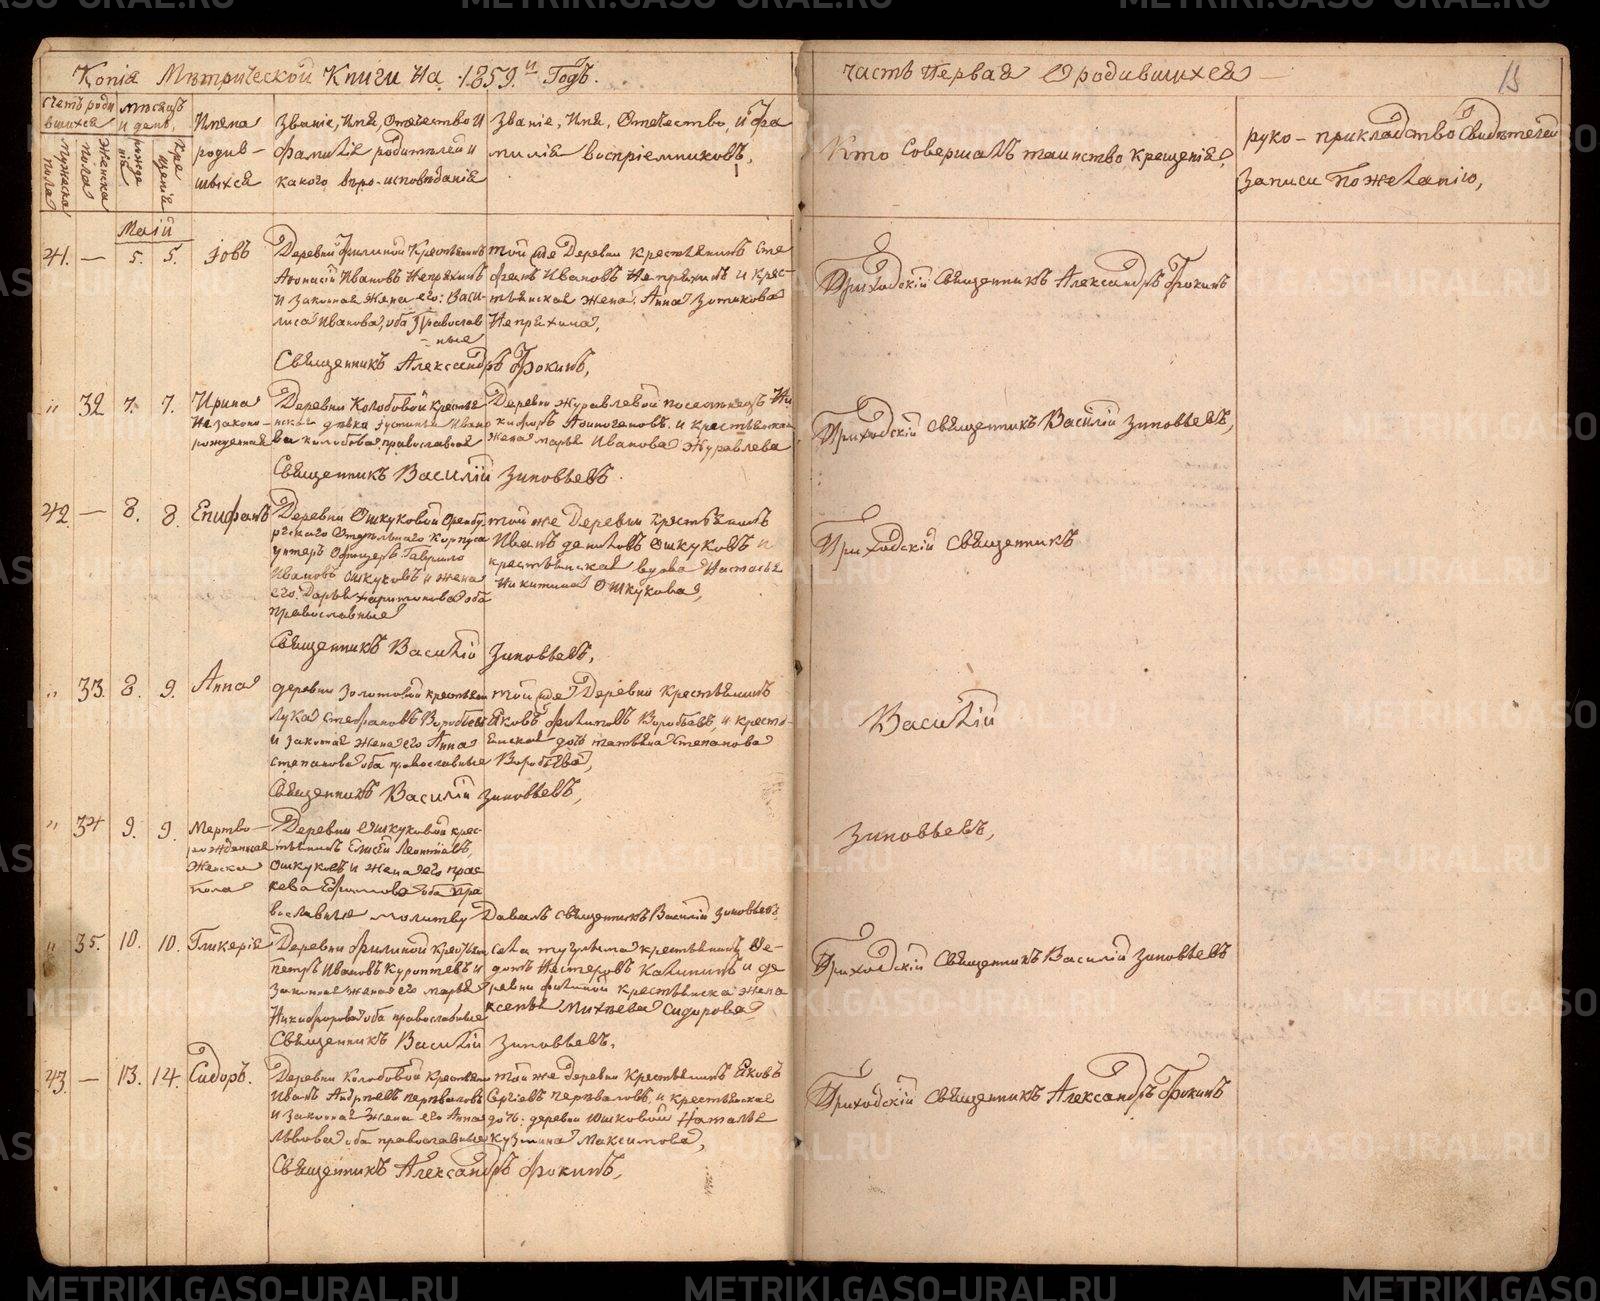 Копія Метрической Книги На 1859й Годъ.
часть Первая О родившихся
счетъ роди
вшихся
мужеска
пола
Женска
пола
Мѣсяцъ
и день.
рожде
нія
Кре
щенія
Имена
родив-
шихся
Званіе, Имя, Отечество И
Фамилія родителей и
какого веро-исповѣданія
Званіе, Имя, Отечество, и фа
милія воспріемниковъ,
Кто Совершалъ таинство крещенія,
руко-прикладство Свидѣтелей
Записи По желанію,
Маій
41. — 5. 5. Іовъ
Деревни Филиной Крестьянинъ
Афонасій Ивановъ Непряхинъ
И Законная жена его: Васи-
лиса Иванова, оба Православ
-ные
той же Деревни крестьянинъ Сте
фанъ Ивановъ Непряхинъ и крес-
тьянская жена Анна Зотикова
Непряхина,
Священникъ Александръ Фокинъ,
Приходскій Священникъ Александръ Фокинъ
" 32 7. 7. Ирина
Незаконно-
рожденная
Деревни Колобовой крестья
нская девка Устинья Ивано
ва Колобова православная
Деревни Журавлевой поселенецъ Ни
кифоръ Афиногеновъ и крестьянская
жена марья Иванова Журавлева
Священникъ Василій Зиновьевъ.
Приходскій Священникъ Василій Зиновьевъ,
42. — 8. 8. Епифанъ
Деревни Ошкуковой Оренбу
ргскаго Отдельнаго Корпуса
унтеръ Офицеръ Гаврило
Ивановъ Ошкуковъ и жена
его Дарья харитонова оба
православные
той же Деревни крестьянинъ
Иванъ даниловъ Ошкуковъ и
крестьянская вдова Настасья
Никитина Ошкукова,
Священникъ Василій Зиновьевъ,
Приходскій Священникъ
" 33. 8. 9. Анна
деревни Золотовой крестьянин
Лука Стефановъ Воробьев
и Законная жена его Анна
степанова оба православные
той же Деревни Крестьянинъ
Яковъ Филиповъ Воробьевъ, и кресть-
янская дочь татьяна Степанова
Воробьева,
Священникъ Василій Зиновьевъ,
Василій
" 34 9. 9. Мертво-
рожденная
Женска
пола
Деревни Ошкуковой крес-
тьянинъ Елисей Леонтіевъ,
Ошкуковъ и жена его прас
кева Ефимова оба пра
вославные молитву Давалъ священникъ Василій Зиновьевъ.
Зиновьевъ,
" 35. 10. 10. Гликерія
Деревни Филиной Крестьян
петръ Ивановъ Куроптевъ и
Законная жена его марья
Никифорова оба православные
села тугулыма крестьянинъ Фе-
дотъ Нестеровъ Калининъ и де
ревни филиной крестьянска жена
ксенья Михеева Сидорова
Священникъ Василій Зиновьевъ,
Приходскій Священникъ Василій Зиновьевъ
43. — 13. 14. Сидоръ.
Деревни Колобовой крестьян
Иванъ Андреевъ перваловъ
и Законная Жена его Анна
Львова оба православные
той же деревни крестьянинъ Яковъ
Сергіевъ перваловъ, и крестьянская
дочь деревни Юшковой Наталья
кузмина Максимова,
Священникъ Александръ Фокинъ,
Приходскій священникъ Александръ Фокинъ
METRIKI.GASO-URAL.RU